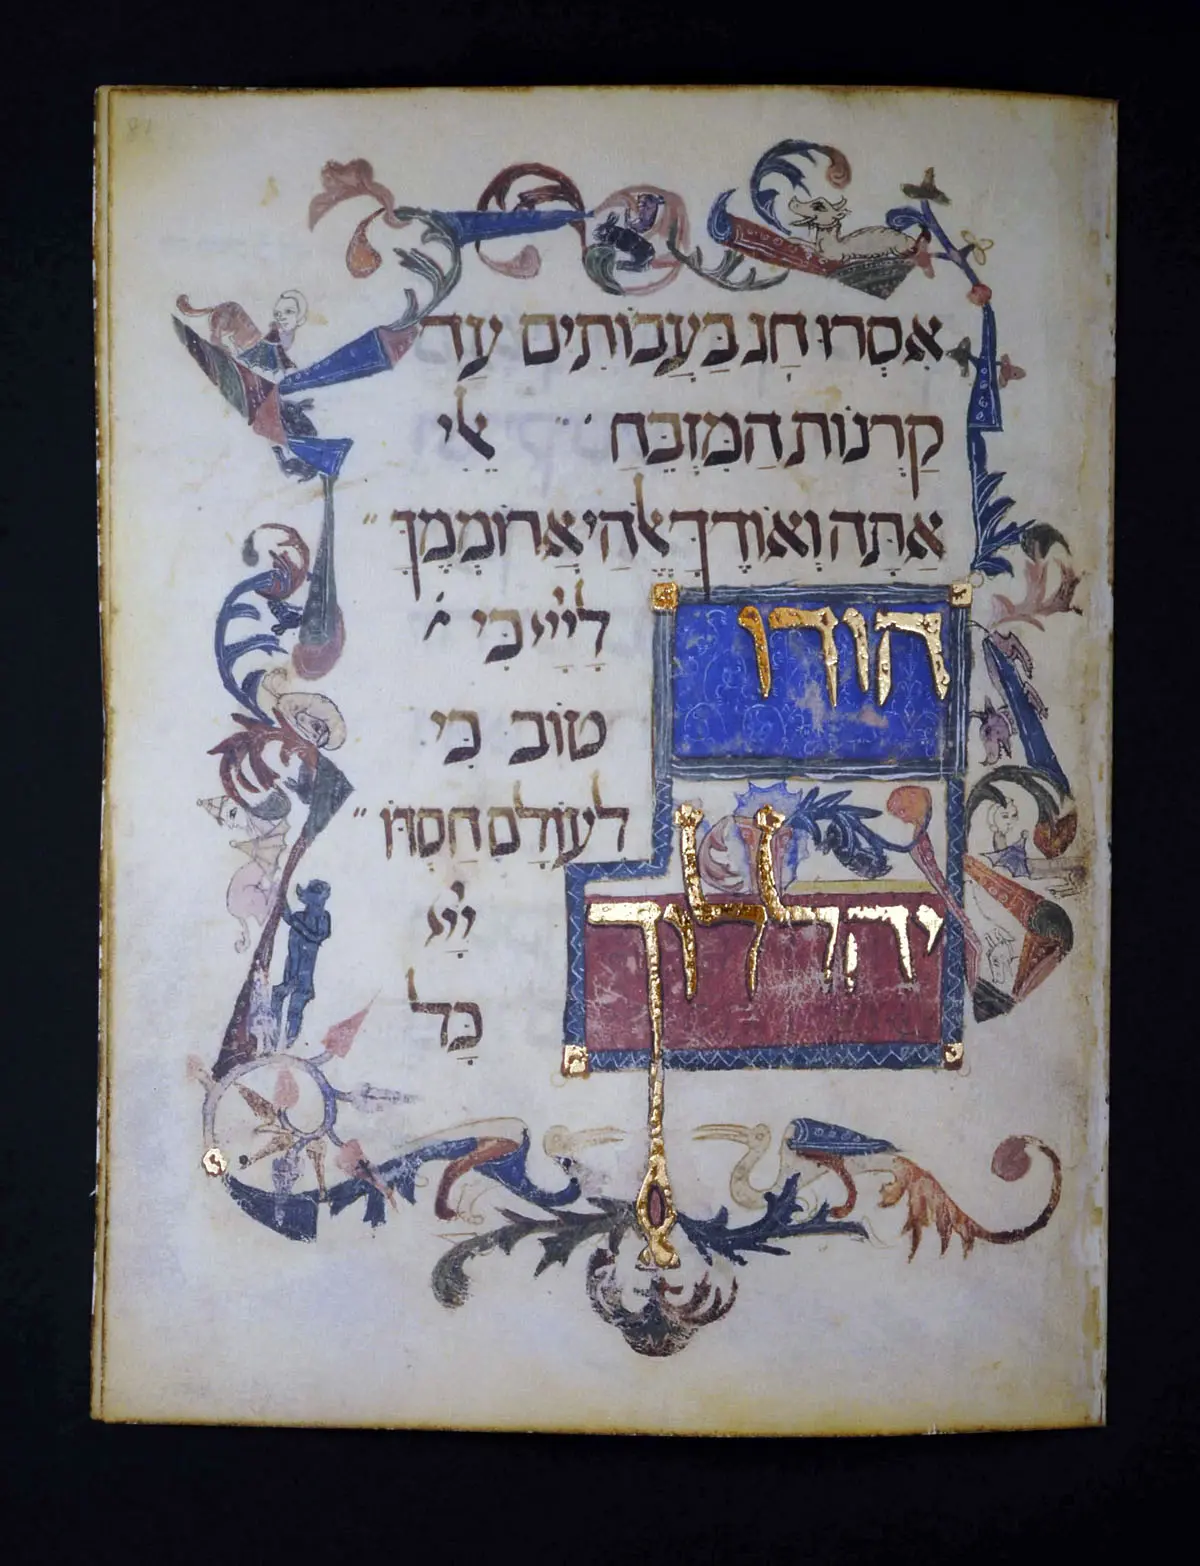 אִסְרוּ חַג בַּעֲבוֹתִים עַד
קַרְנוֹת הַמִּזְבֵּחַ ׳ אֵלִי
אַתָּה וְאוֹדֶךָּ אֱלֹהַי אֲרוֹמְמֶךָּ ״
הודו לַיְיָ כִּי ׳
טוֹב כִּי
לְעוֹלָם חַסְדּוֹ ״
יהללוך יְיָ
כָּל